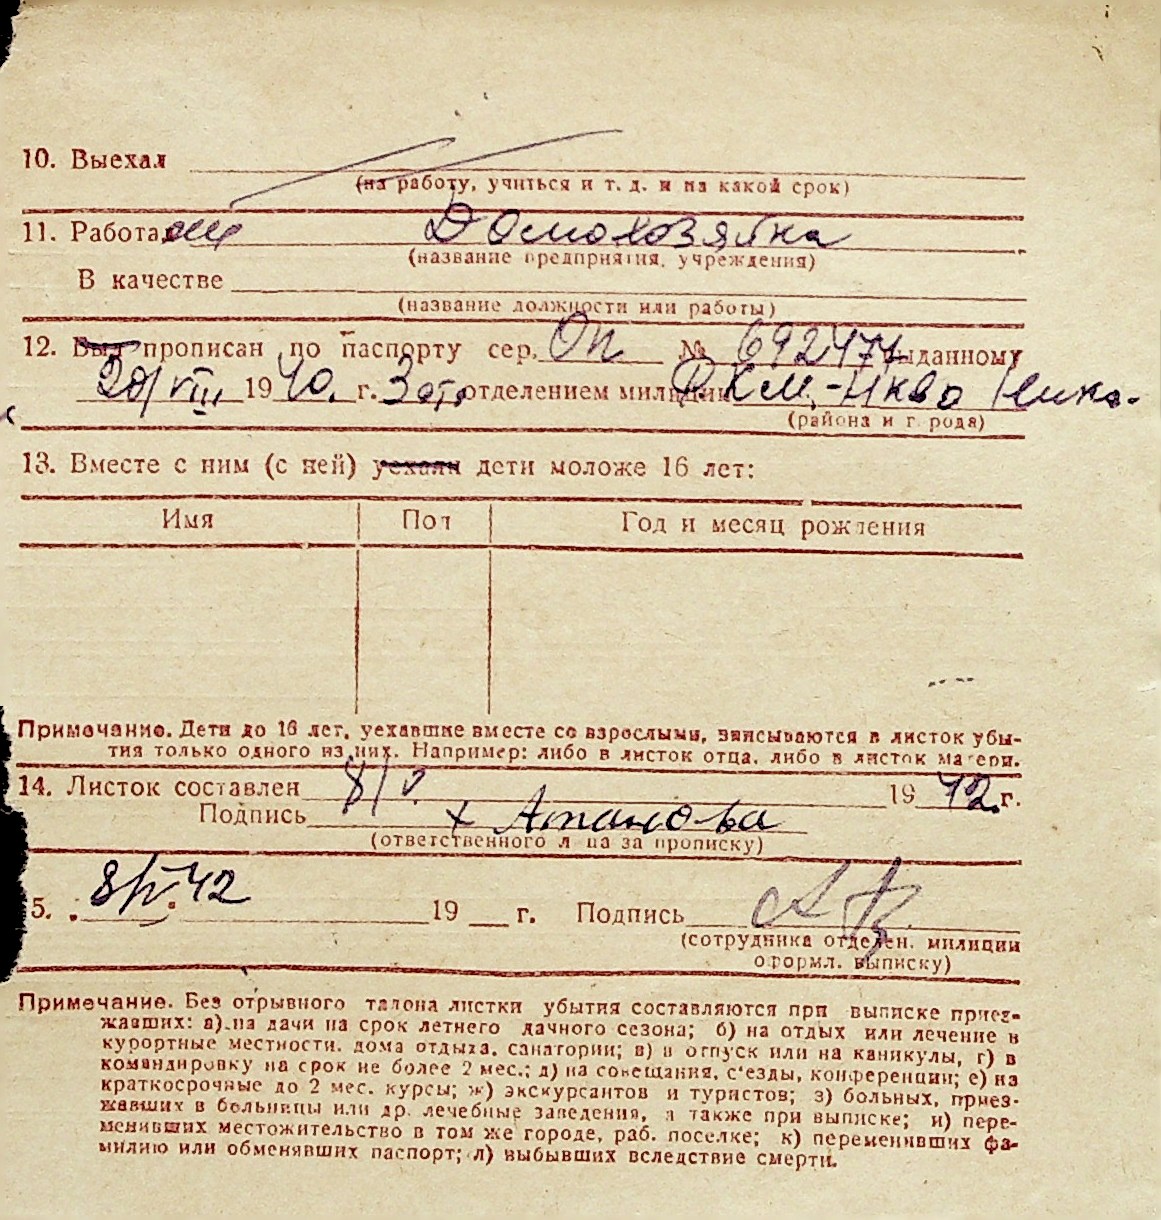 10. Выехал
(на работу, учиться и т. д. и на какой срок)
11. Работа Домохозяйка
(название предприятия, учреждения)
В качестве
(название должности или работы)
12. Был прописан по паспорту сер. ОП № 692471 выданному
20/VIII 1940. г. 3 отд. отделением милиции РКМ.-НКВД
(района и города)
13. Вместе с ним (с ней) уехали дети моложе 16 лет:
Имя Пол Год и месяц рождения
Примечание. Дети до 16 лет, уехавшие вместе со взрослыми, вписываются в листок убы-
тия только одного из них. Например: либо в листок отца, либо в листок матери.
14. Листок составлен 8/V. 1942 г.
Подпись х Атанова
(ответственного лица за прописку)
5. 8/V 42 19 г. Подпись
(сотрудника отделен. милиции
оформл. выписку)
Примечание. Без отрывного талона листки убытия составляются при выписке приез-
жавших: а) на дачи на срок летнего дачного сезона; б) на отдых или лечение в
курортные местности, дома отдыха, санатории; в) в отпуск или на каникулы, г) в
командировку на срок не более 2 мес.; д) на совещания, с'езды, конференции; е) на
краткосрочные до 2 мес. курсы; ж) экскурсантов и туристов; з) больных, приез-
жавших в больницы или др. лечебные заведения, а также при выписке; и) пере-
менивших местожительство в том же городе, раб. поселке; к) переменивших фа-
милию или обменявших паспорт; л) выбывших вследствие смерти.